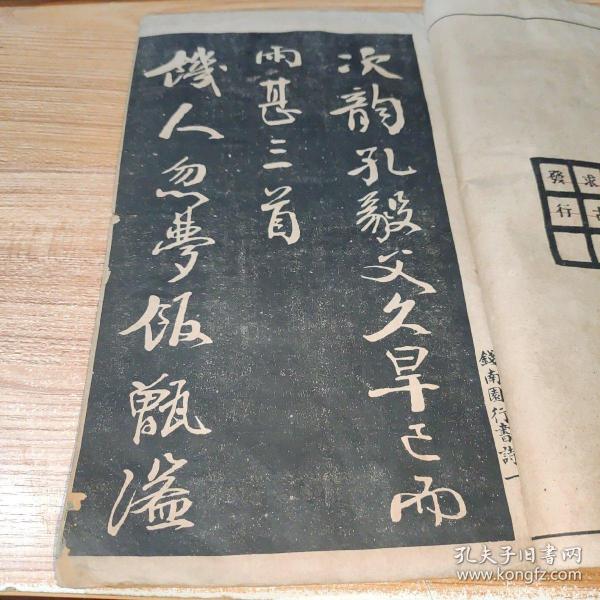 次韵孔毅父久旱已而
雨甚三首
饑人忽夢飯甑溢
錢南園行書詩一
求
發行
孔夫子旧书网
www.kongfz.com